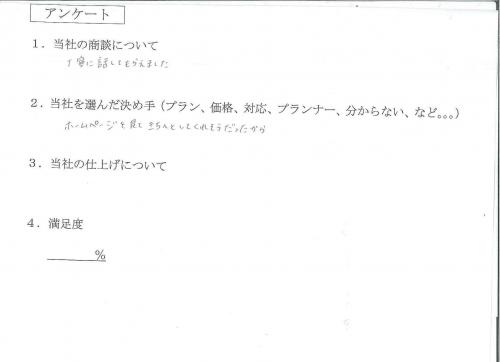 アンケート
1．当社の商談について
丁寧に話してもらえました
2．当社を選んだ決め手（プラン、価格、対応、プランナー、分からない、など。。。）
ホームページを見てきちんとしてくれそうだったから
3．当社の仕上げについて
4．満足度
______%